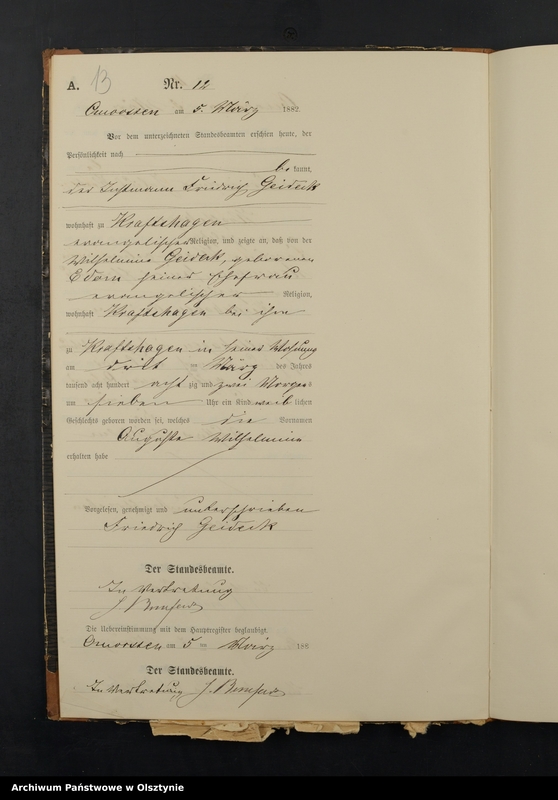 A. 13 Nr. 12
am 5. März 1882.
Vor dem unterzeichneten Standesbeamten erschien heute, der
Persönlichkeit nach
be kannt,
der Instmann Friedrich Geideck
wohnhaft zu Kraftshagen
evangelischer Religion, und zeigte an, daß von der
Wilhelmine Geideck, geborenen
Edom seiner Ehefrau
evangelischer Religion,
wohnhaft Kraftshagen bei ihm
zu Kraftshagen in seiner Wohnung
am drit ten März des Jahres
tausend acht hundert acht zig und zwei Morgens
um sieben Uhr ein Kind weib lichen
Geschlechts geboren worden sei, welches die Vornamen
Auguste Wilhelmine
erhalten habe
Vorgelesen, genehmigt und unterschrieben
Friedrich Geideck
Der Standesbeamte.
In Vertretung
Die Uebereinstimmung mit dem Hauptregister beglaubigt.
am 5 ten März 188
Der Standesbeamte.
In Vertretung
Archiwum Państwowe w Olsztynie